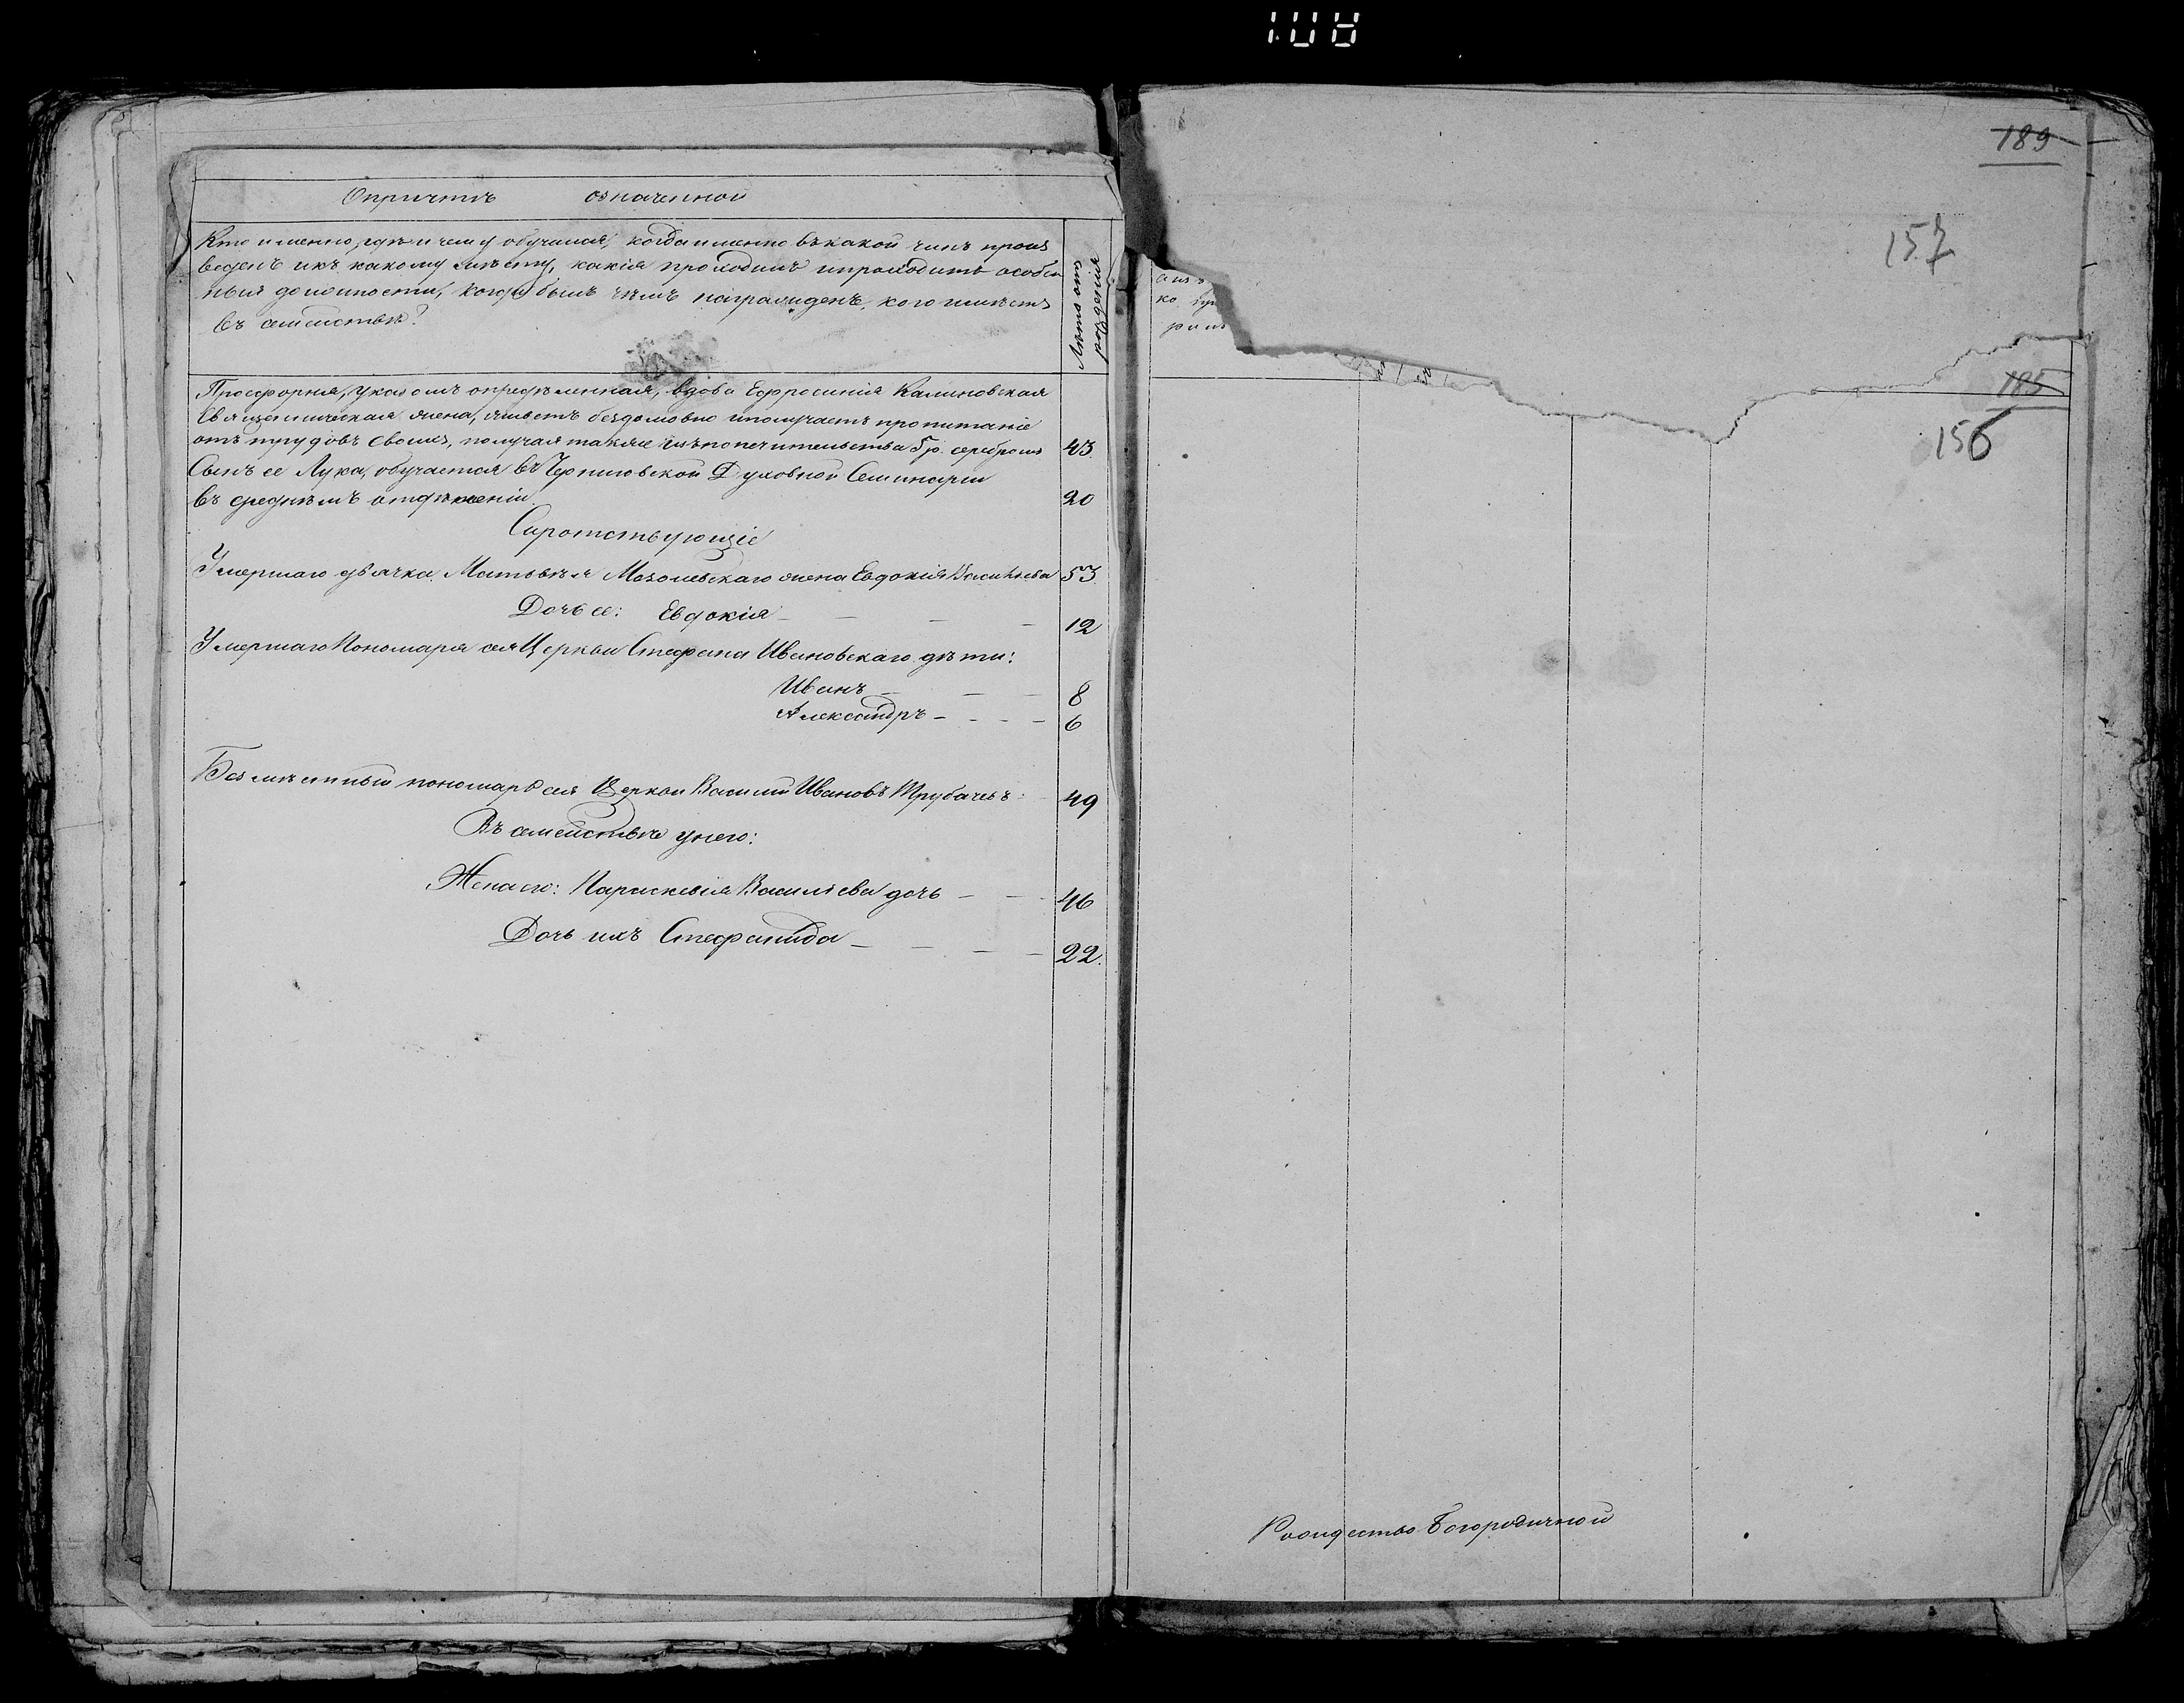 108
О причтѣ означенной
Кто именно, гдѣ и чему обучался, когда именно въ какой чинъ произ
веденъ и къ какому мѣсту, какія проходилъ и проходитъ особен
ныя должности, когда былъ чѣмъ награжденъ, кого имѣетъ
въ семействѣ?
Лѣта отъ рожденія
Просфорня, указомъ опредѣленная, вдова Ефросинія Калиновская
Священническая жена, живетъ бездомовно и получаетъ пропитаніе
отъ трудовъ своихъ, получая также изъ попечительства 5 р. серебромъ 43.
Сынъ ее Лука, обучается въ Черниговской Духовной Семинаріи
въ среднемъ отдѣленіи 20
Сиротствующіе
Умершаго дьячка Матвѣя жена Евдокія Васильева 53.
Дочь ее: Евдокія - - - - 12
Умершаго Пономаря сея Церкви Стефана Ивановскаго дѣти:
Иванъ - - - 8
Александръ - - - - 6
Безмѣстный пономарь сея Церкви Василій Ивановъ Трубачевъ 49
Въ семействѣ у него:
Жена его: Параскевія Василіева дочь - - - 46
Дочь ихъ Стефанида - - - - 22.
189
157
185
156
Рождество Богородичной